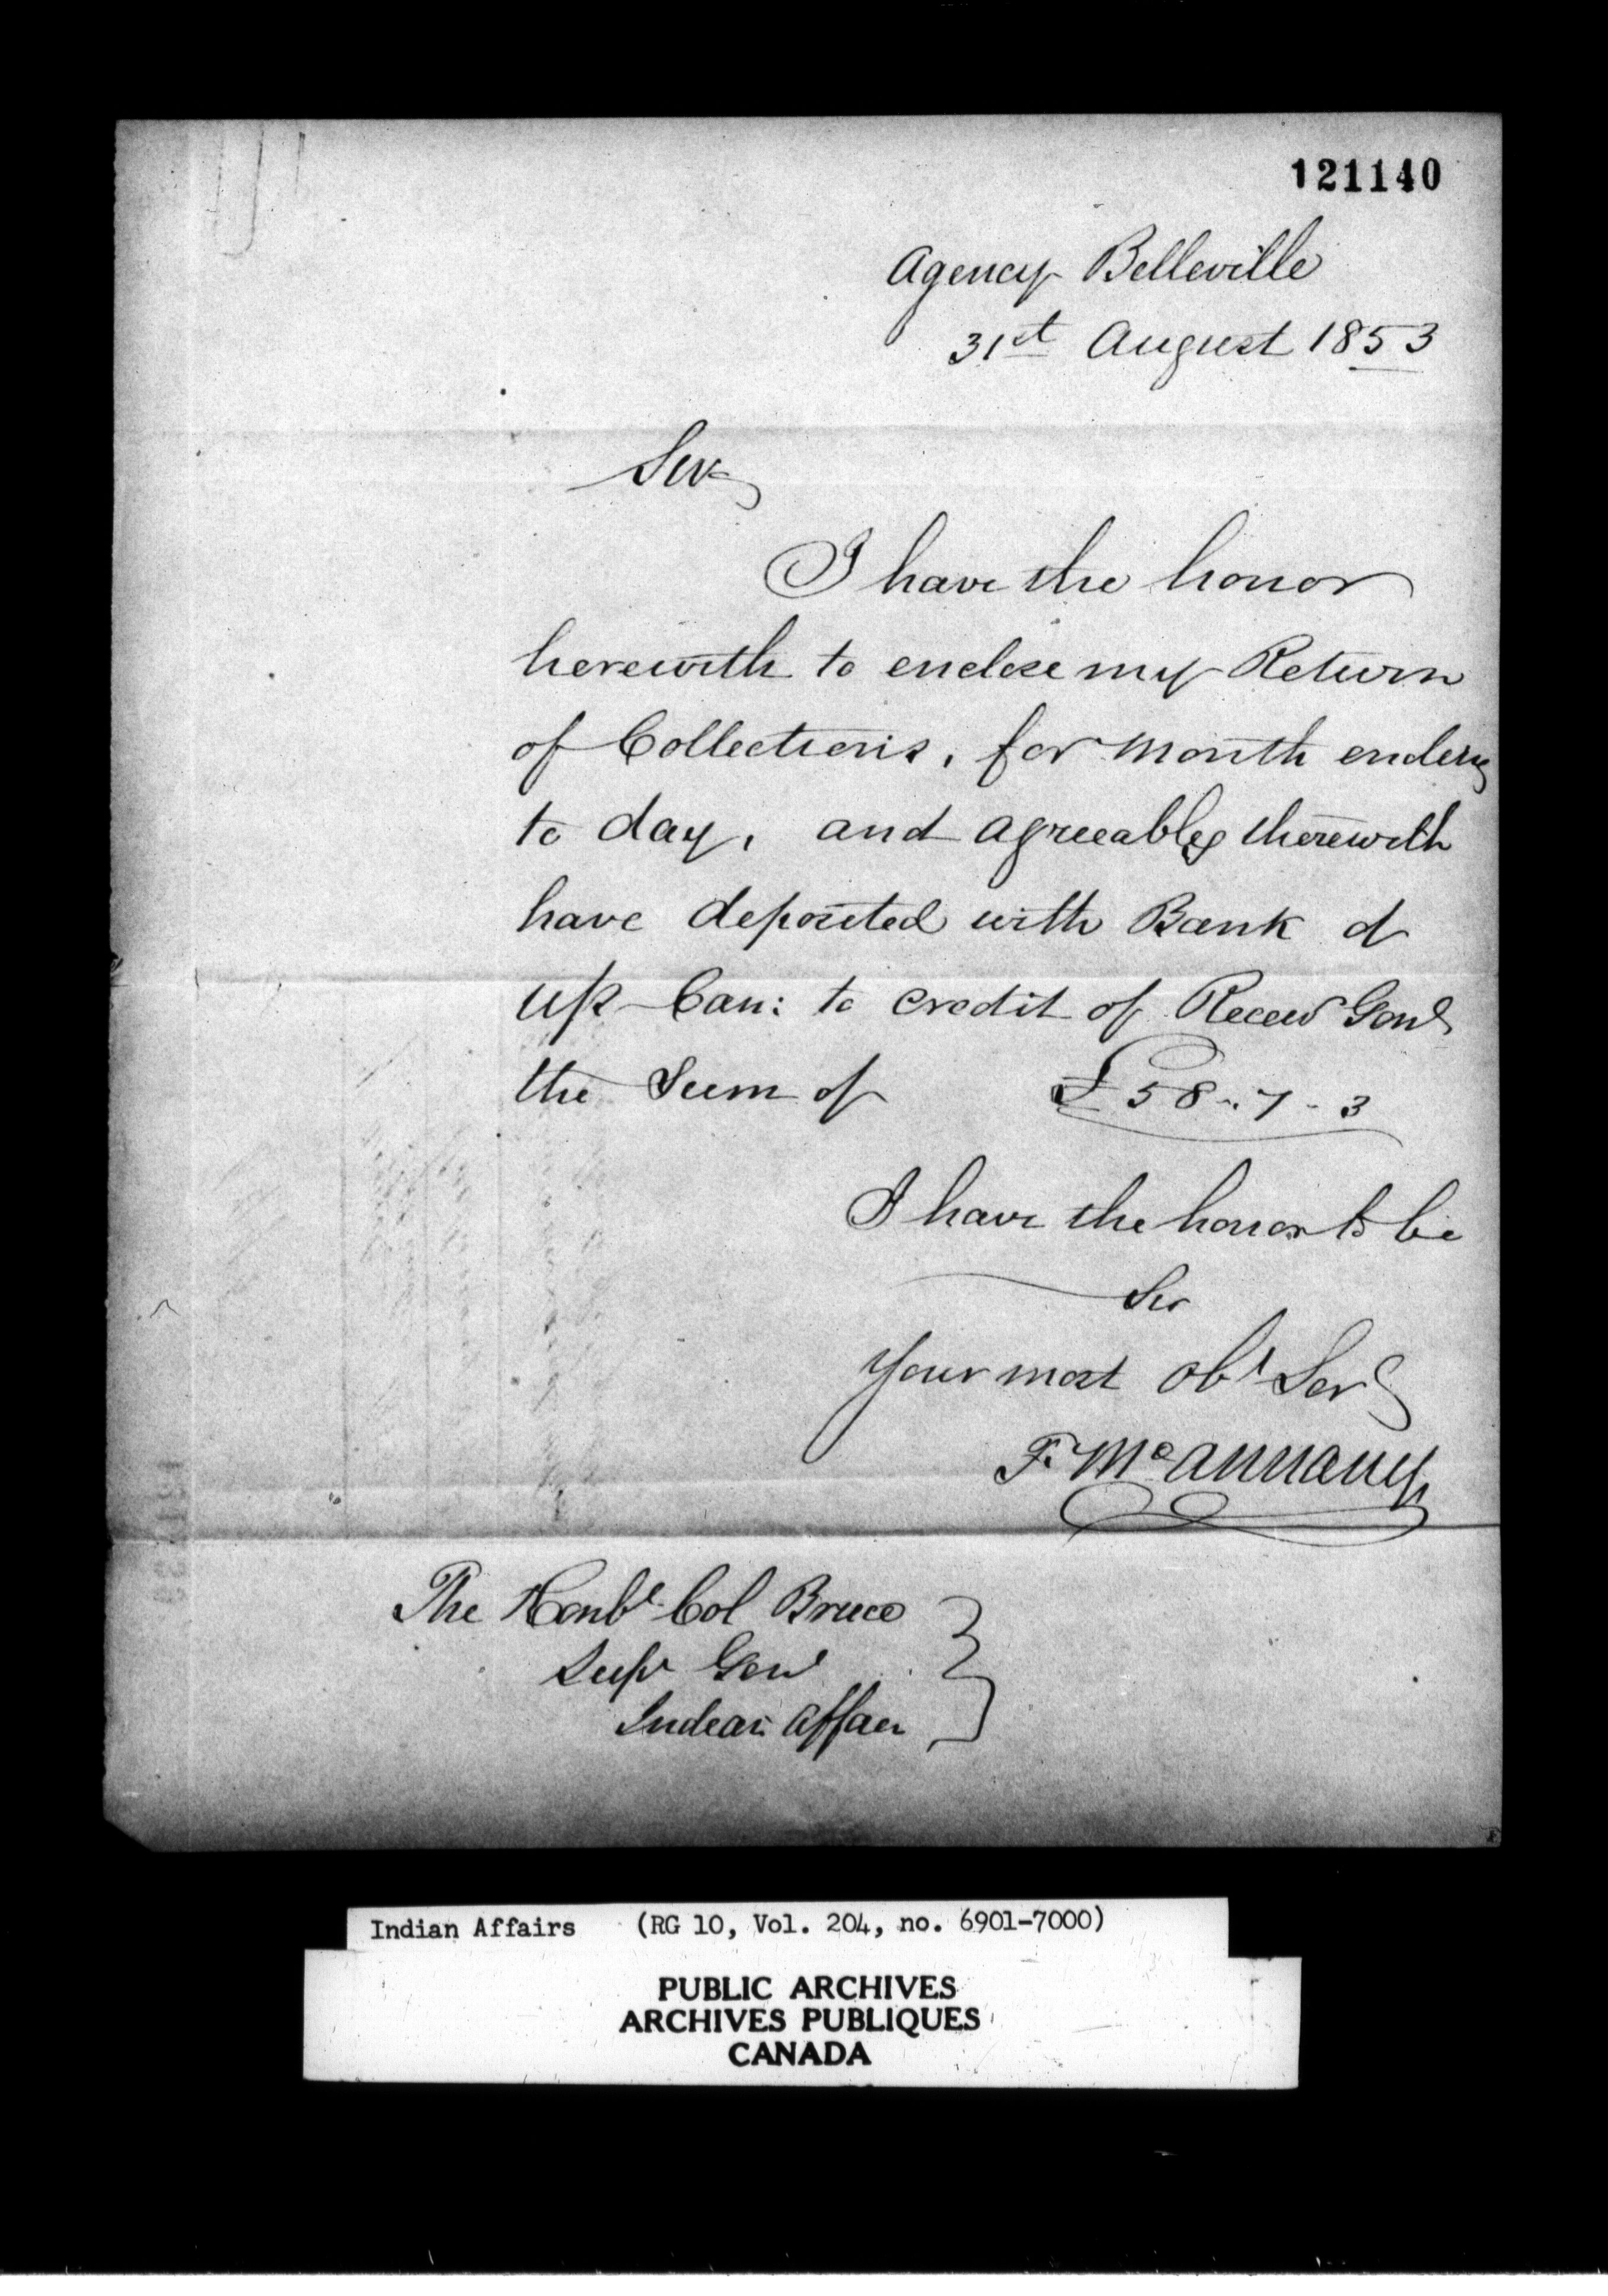 121140
Agency Belleville
31st August 1853
Sir
I have the honor
herewith to enclose my Return
of Collections, for month ending
to day, and agreeably therewith
have deposited with Bank of
Up Can: to credit of Receiv Genl
the Sum of £58-7-3
I have the honor to be
Sir
Your most Obt Sert
F. McAnnany
The Honble Col Bruce
Supt Genl
Indian Affairs
Indian Affairs (RG 10, Vol. 204, no. 6901-7000)
PUBLIC ARCHIVES
ARCHIVES PUBLIQUES
CANADA